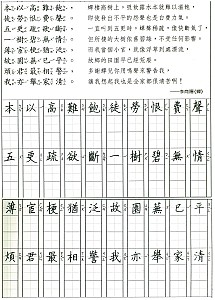 本以高難飽,
徒勞恨費聲。
五更疏欲斷,
一樹碧無情。
薄宦梗猶泛,
故園蕪已平。
煩君最相警,
我亦舉家清。
蟬棲高樹上,吸飲露水本就難以溫飽,
即使發出不平的怨聲也是白費力氣。
一直叫到五更時,蟬聲稀疏,像快斷氣了,
但所棲的大樹依舊碧綠,不受任何影響。
而我當個小官,就像浮萍到處漂流,
故鄉的田園早已經荒蕪。
多謝蟬兒你用鳴聲來警告我,
讓我想起我也是全家都很清苦啊!
李商隱(蟬)
本以高難飽徒勞恨費聲
五更疏欲斷一樹碧無情
薄宦梗猶泛故園蕪已平
煩君最相警我亦舉家清